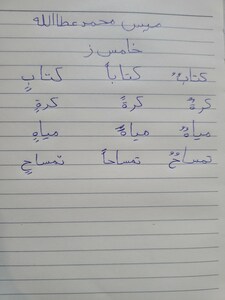 ميس محمد عطاالله
خامس ز
كتابٌ كتاباً كتابٍ
كرةٌ كرةً كرةٍ
مياهٌ مياهً مياهٍ
تمساحٌ تمساحاً تمساحٍ